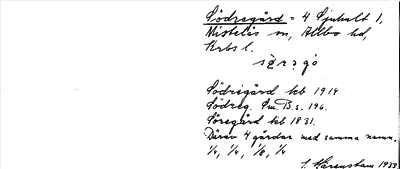 Södregård - 4 Sjuhult 1,
Mistelås sn, Allbo hd,
Krbs l.
Södregård kb 1914
Södreg. Sm.B.s. 196.
Söregård kb 1831.
Därav 4 gårdar med samma namn,
¼, ¼, ⅛, ¼
1933